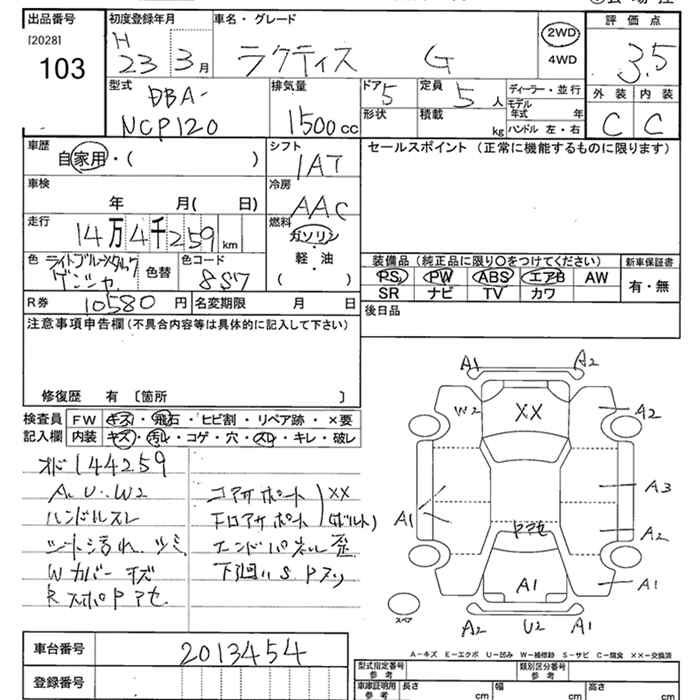 出品番号
[2028]
103
初度登録年月
H
23 3月
車名・グレード
ラクティス G
2WD
4WD
評価点
3.5
外装 内装
C C
型式
DBA-
NCP120
排気量
1500cc
ドア 5
形状
定員 5人
積載 kg
ディーラー・並行
モデル年式 年
ハンドル 左・右
車歴
自家用・( )
シフト
IAT
セールスポイント(正常に機能するものに限ります)
車検
年 月( 日)
冷房
AAC
走行
14万4千259km
燃料
ガソリン
軽・油
( )
色 ライトブルーメタリック
色替
色コード
8S7
装備品(純正品に限り○をつけてください)
PS PW ABS エアB AW
SR ナビ TV カワ
新車保証書
有・無
R券 10580円
名変期限 月 日
後日品
注意事項申告欄(不具合内容等は具体的に記入して下さい)
修復歴 有 〔箇所 〕
検査員
記入欄
FW キズ・飛石・ヒビ割・リペア跡・×要
内装 キズ・汚れ・コゲ・穴・スレ・キレ・破レ
オド144259
A.U..W2
ハンドルスレ
シート汚れ シミ
Wカバーキズ
Rスポ Pアセ
コアサポート
XX
FロアサポートI
(ボルト)
エンドパネル歪
下廻りS Pスリ
A1 A2
W2 XX A2
A1 A3
Pアセ A2
A1 A1
スペア
A2 U2 A1
A-キズ E-エクボ U-凹み W-補修跡 S-サビ C-腐食 ××-交換済
車台番号 2013454
登録番号
型式指定番号
参考
類別区分番号
参考
車庫証明用
参考
長さ cm
幅 cm
高さ cm